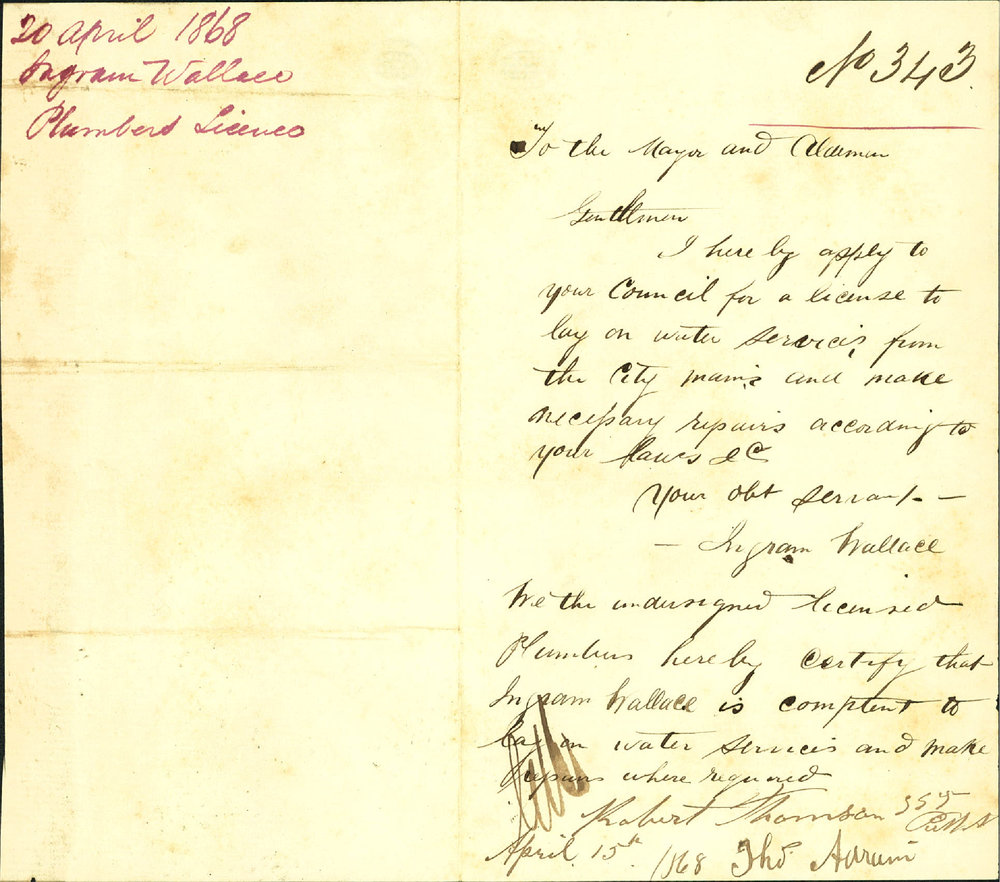 20 April 1868
Ingram Wallace
Plumbers Licence
No 343.
To the Mayor and Aldermen
Gentlemen
I here by apply to
your Council for a license to
lay on water services from
the City mains and make
necessary repairs according to
your laws &c
Your obt servant —
— Ingram Wallace
We the undersigned licensed
Plumbers hereby certify that
Ingram Wallace is comptent to
lay on water services and make
repairs where required
Robert Thomson 355
Pitt St
April 15th 1868 Thos. Adrum